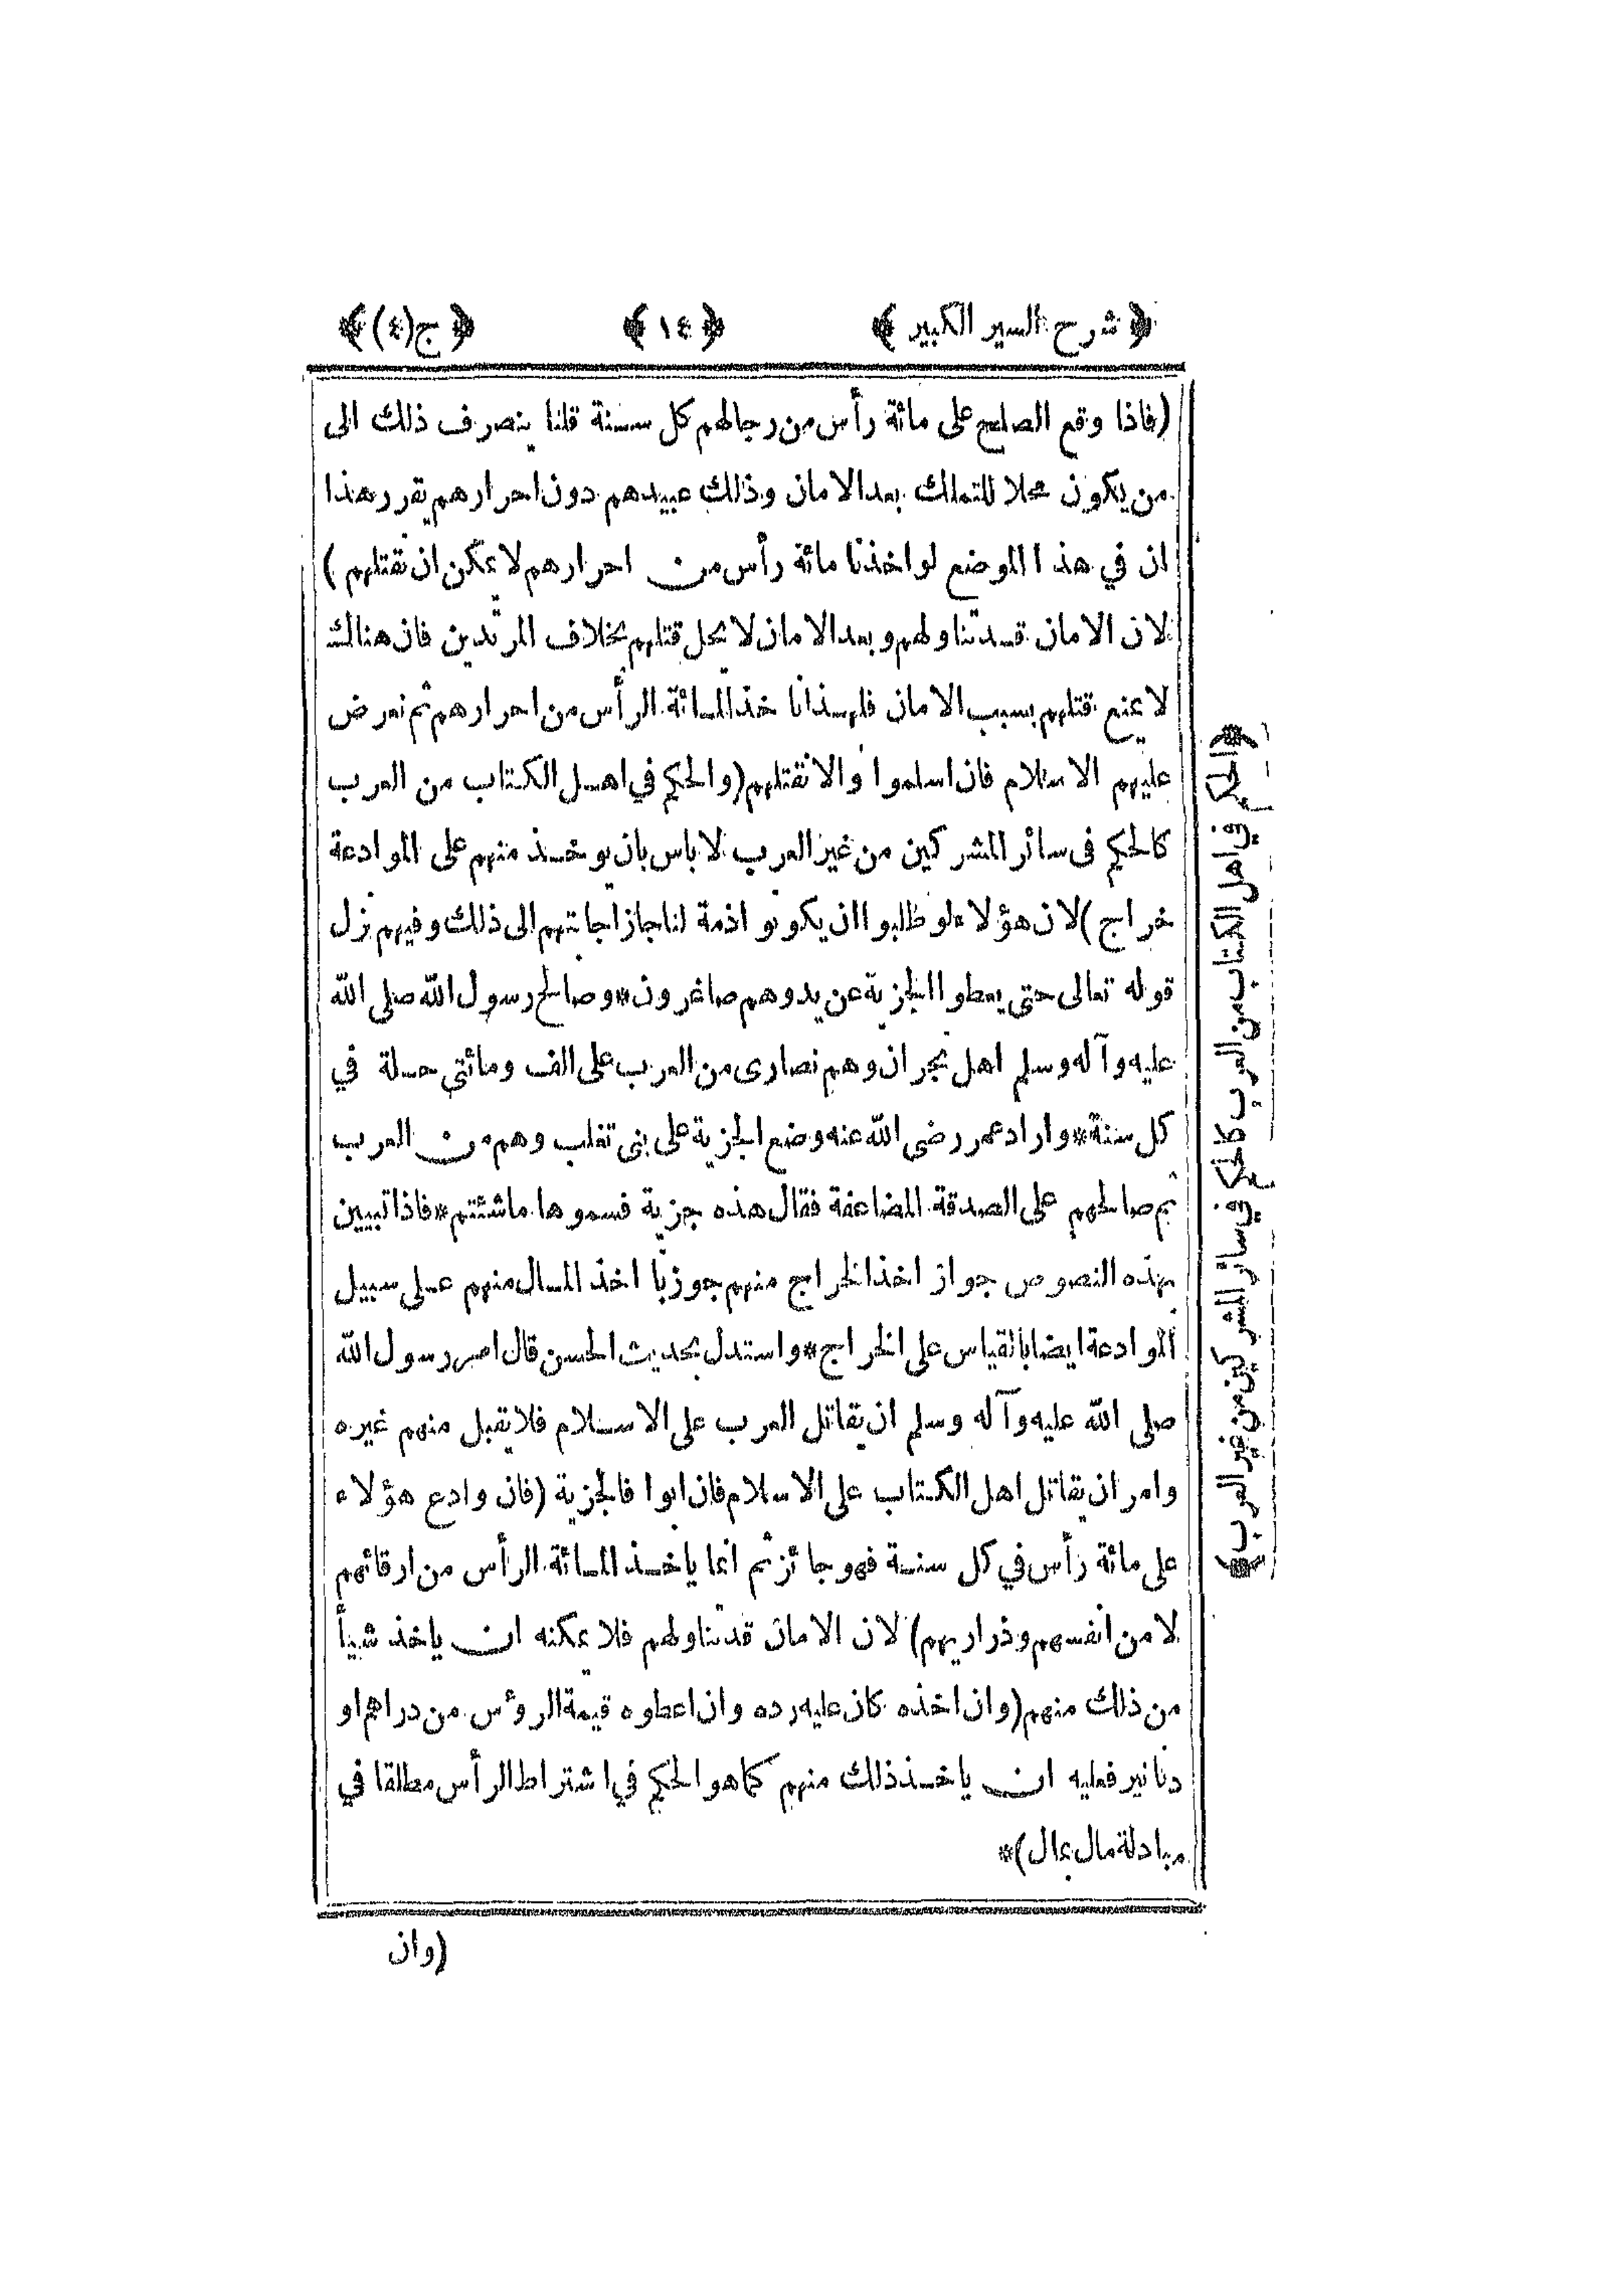 ﴿ شرح السير الكبير ﴾ ﴿ ١٤ ﴾ ﴿ ج(٤) ﴾
(فاذا وقع الصلح على مائة رأس من رجالهم كل سنة قلنا ينصرف ذلك الى
من يكون محلا للتملك بعد الامان وذلك عبيدهم دون احرارهم يقرر هذا
ان في هذا الموضع لو اخذنا مائة رأس من احرارهم لا يمكن ان نقتلهم)
لان الامان قد تناولهم وبعد الامان لا يحل قتلهم بخلاف المرتدين فان هنالك
لا يمنع قتلهم بسبب الامان فلهذا ناخذ المائة الرأس من احرارهم ثم نعرض
عليهم الاسلام فان اسلموا والا نقتلهم (والحكم في اهل الكتاب من العرب
كالحكم فى سائر المشركين من غير العرب لا باس بان يوخذ منهم على الموادعة
خراج) لان هؤلاء لو طلبوا ان يكونوا ذمة لنا جاز اجابتهم الى ذلك وفيهم نزل
قوله تعالى حتى يعطوا الجزية عن يد وهم صاغرون * وصالح رسول الله صلى الله
عليه وآله وسلم اهل نجران وهم نصارى من العرب على الف ومائتي حلة في
كل سنة * واراد عمر رضى الله عنه وضع الجزية على بنى تغلب وهم من العرب
ثم صالحهم على الصدقة المضاعفة فقال هذه جزية فسموها ما شئتم * فاذا تبيين
بهذه النصوص جواز اخذ الخراج منهم جوزنا اخذ المال منهم على سبيل
الموادعة ايضا بالقياس على الخراج * واستدل بحديث الحسن قال امر رسول الله
صلى الله عليه وآله وسلم ان يقاتل العرب على الاسلام فلا يقبل منهم غيره
وامر ان يقاتل اهل الكتاب على الاسلام فان ابوا فالجزية (فان وادع هؤلاء
على مائة رأس في كل سنة فهو جائز ثم انما ياخذ المائة الرأس من ارقائهم
لا من انفسهم وذراريهم) لان الامان قد تناولهم فلا يمكنه ان ياخذ شيأ
من ذلك منهم (وان اخذه كان عليه رده وان اعطوه قيمة الرؤس من دراهم او
دنانير فعليه ان ياخذ ذلك منهم كما هو الحكم في اشتراط الرأس مطلقا في
مبادلة مال بمال) *
(وان
﴿الحكم في اهل الكتاب من العرب كالحكم في سائر المشركين من غير العرب﴾